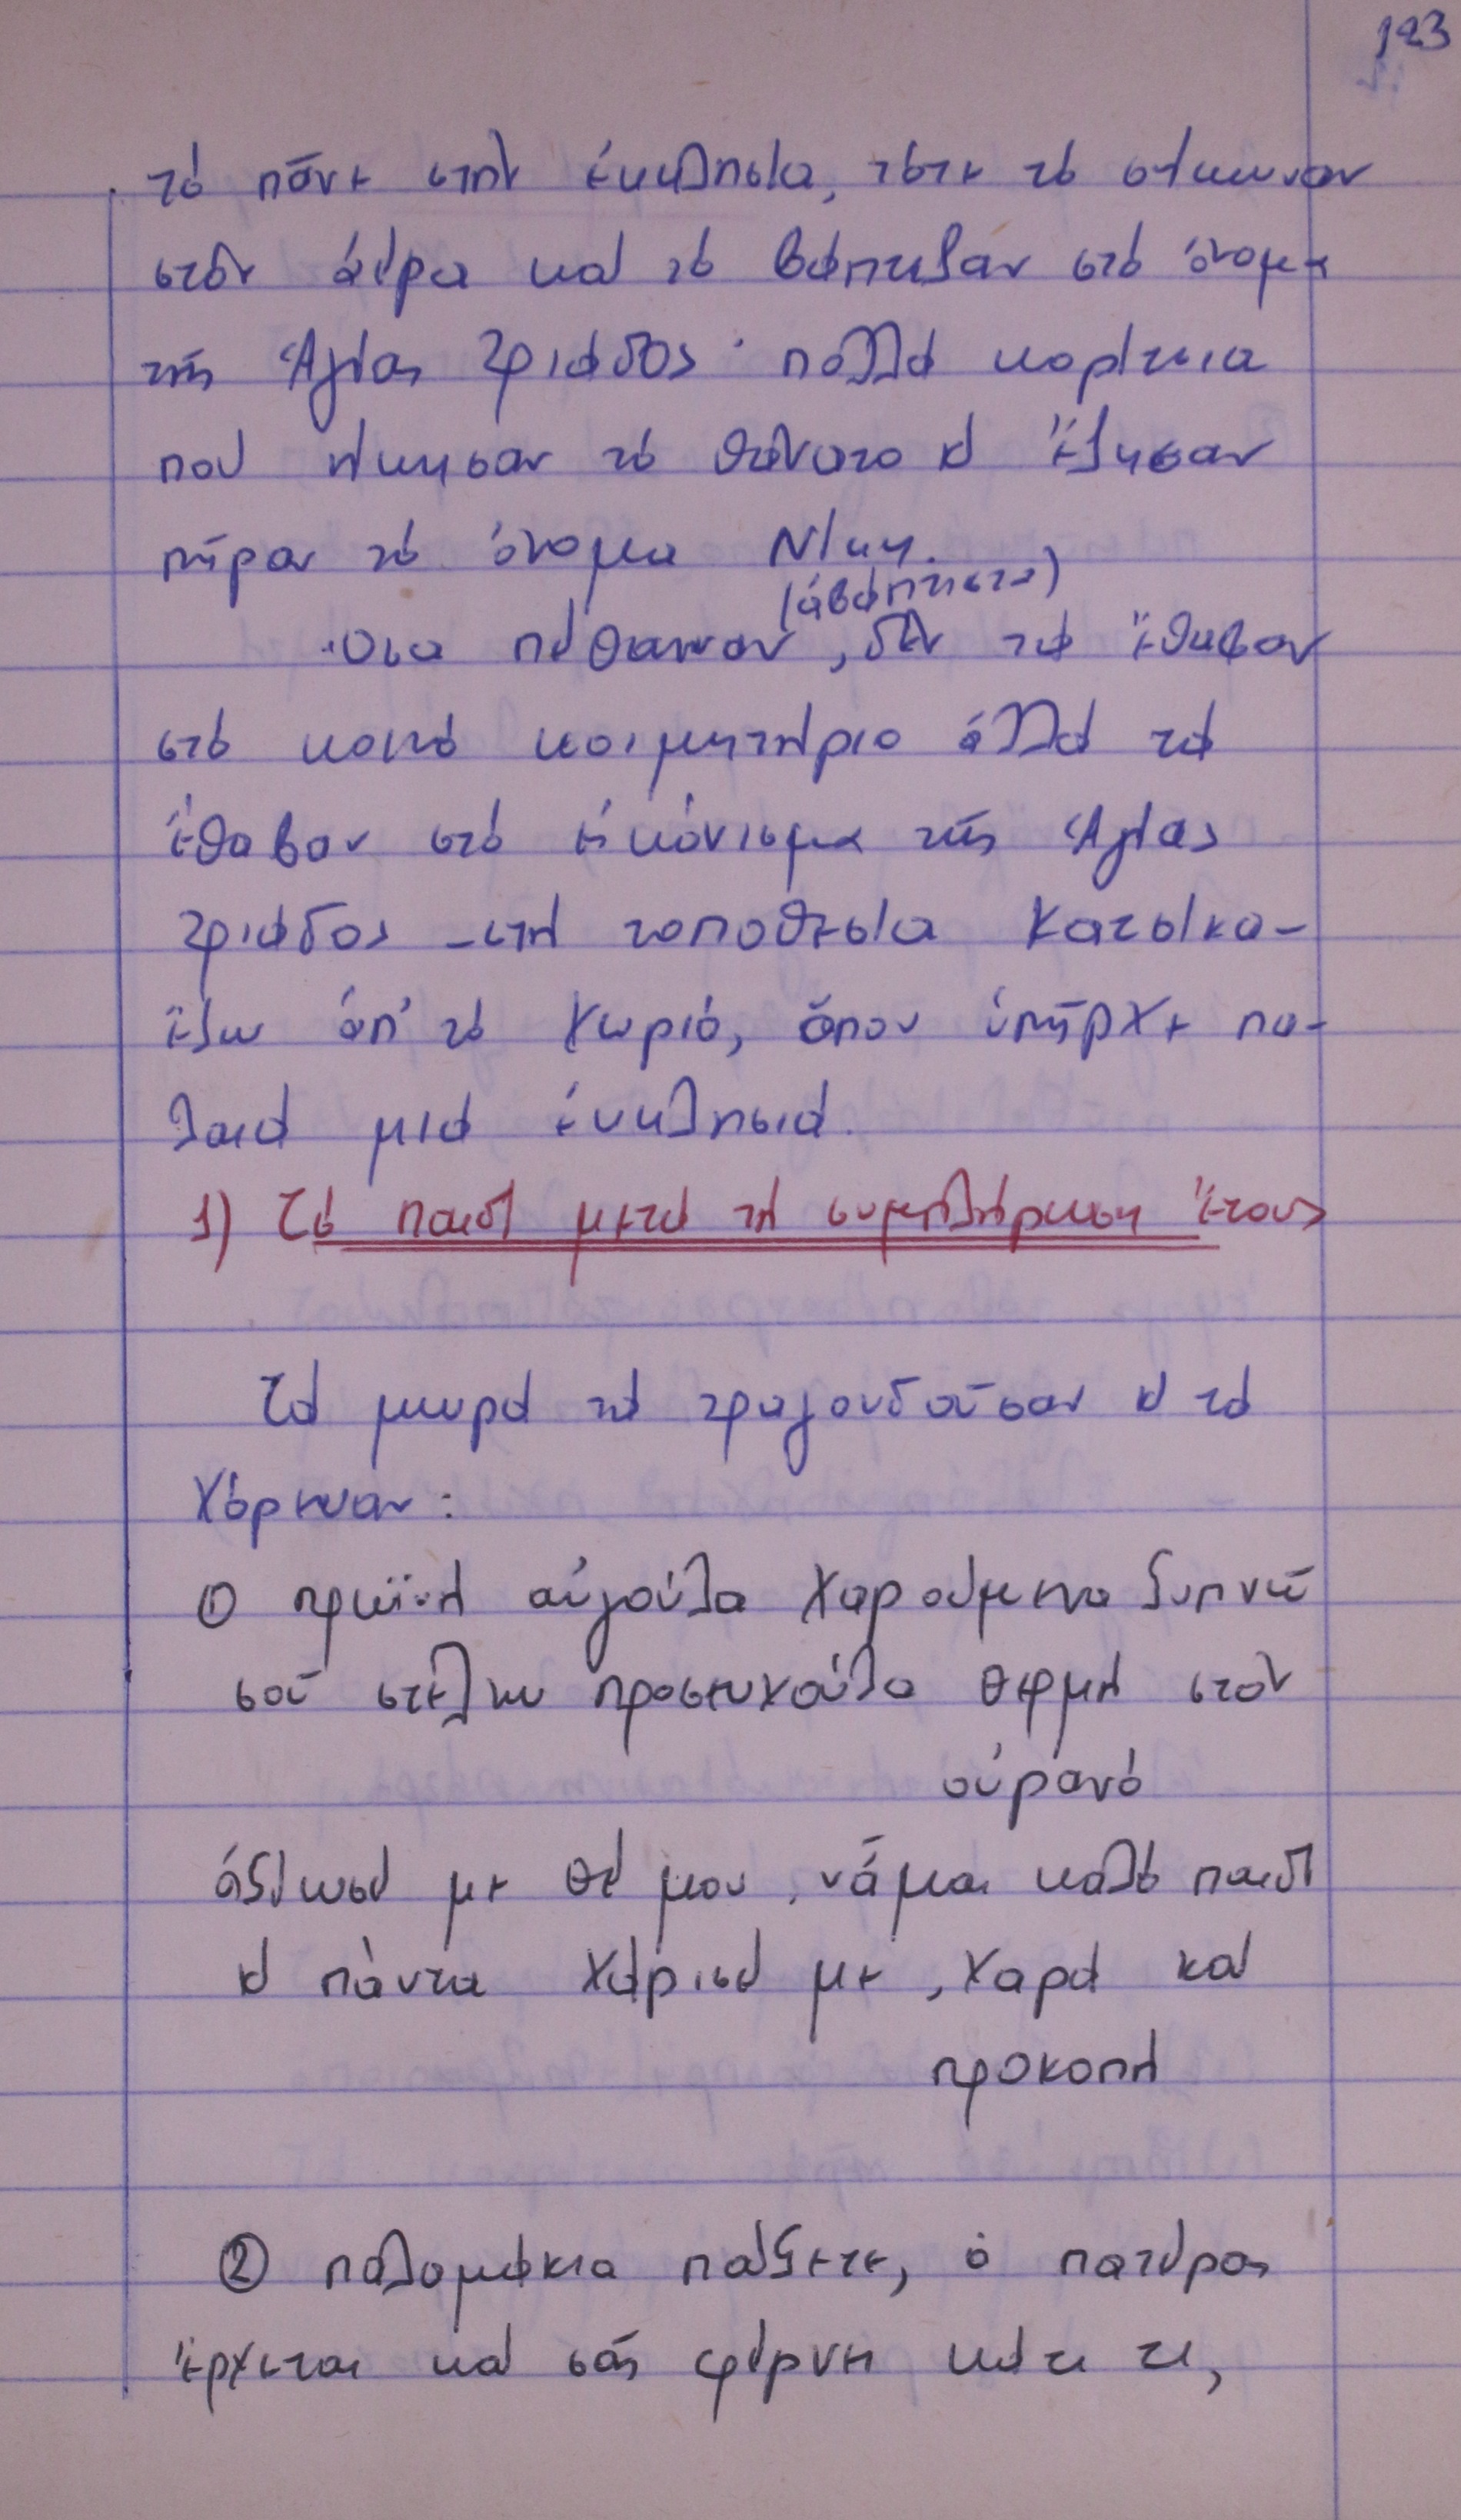 123
τό πᾶνε στήν ἐκκλησία, τότε τό σήκωναν
στόν ἀέρα καί τό βάπτιζαν στό ὄνομα
τῆς Ἁγίας Τριάδος· πολλά κορίτσια
πού νίκησαν τό θάνατο κι ἔζησαν
πῆραν τό ὄνομα Νίκη.
(ἀβάπτιστα)
Ὅσα πέθαιναν, δέν τά ἔθαβαν
στό κοινό κοιμητήριο ἀλλά τά
ἔθαβαν στό εἰκόνισμα τῆς Ἁγίας
Τριάδος – στή τοποθεσία Κατσίκα –
ἔξω ἀπ' τό χωριό, ὅπου ὑπῆρχε πα-
λαιά μιά ἐκκλησιά.
1) Τό παιδί μετά τή συμπλήρωση ἔτους
Τά μωρά τά τραγουδοῦσαν κι τά
χόρευαν:
① πρωϊνή αὐγούλα χαρούμενα ξυπνῶ
σοῦ στέλνω προσευχούλα θερμή στόν
οὐρανό
ἀξίωσέ με Θέ μου, νἆμαι καλό παιδί
κι πάντα χάρισέ με, χαρά καί
προκοπή
② παλαμάκια παίξετε, ὁ πατέρας
ἔρχεται καί σᾶς φέρνει κάτι τι,